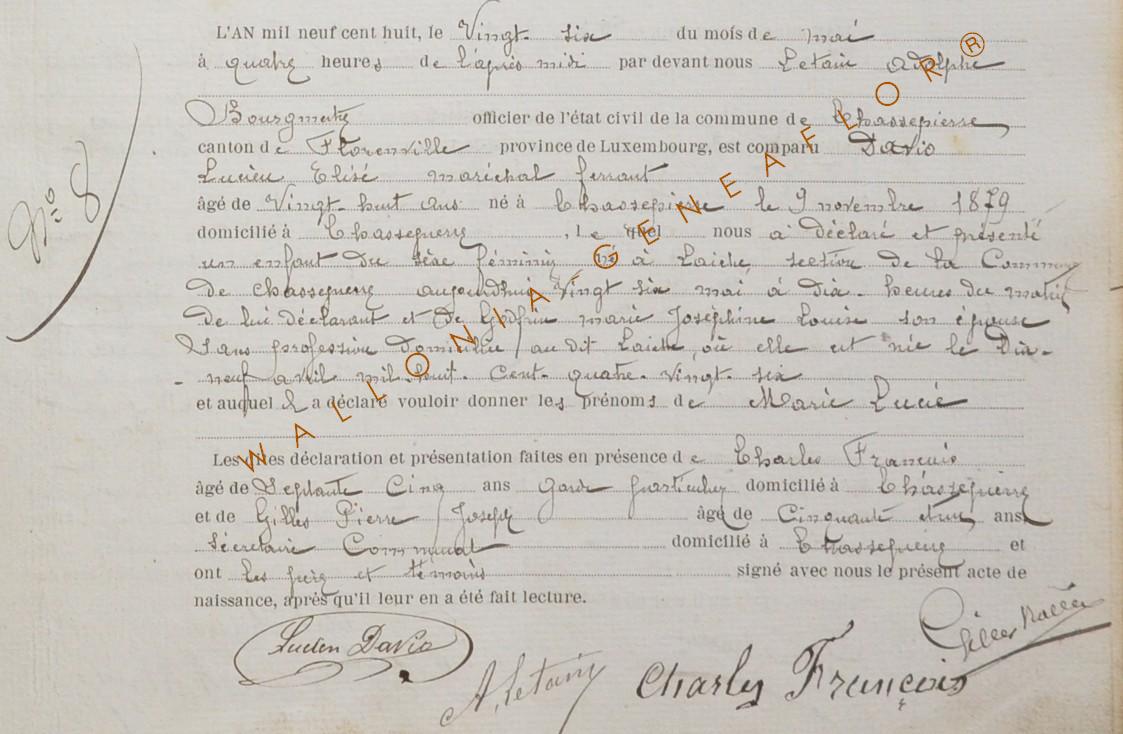 L'AN mil neuf cent huit, le Vingt six du mois de mai
à quatre heures de l'après midi par devant nous Letain Adolphe
Bourgmestre officier de l'état civil de la commune de Chassepierre
canton de Florenville province de Luxembourg, est comparu Davio
Lucien Elisé maréchal ferrant
âgé de Vingt huit ans né à Chassepierre le 9 novembre 1879
domicilié à Chassepierre, le quel nous a déclaré et présenté
un enfant du sexe féminin né à Laiche, section de la Commune
de Chassepierre aujourdhui Vingt six mai à dix heures du matin
de lui déclarant et de Godfrin marie Joséphine Louise son épouse
Sans profession domiciliée au dit Laiche, où elle est née le Dix-
neuf avril mil huit Cent quatre vingt six
et auquel il a déclaré vouloir donner les prénoms de Marie Lucie
Les dites déclaration et présentation faites en présence de Charles François
âgé de Septante Cinq ans Garde particulier domicilié à Chassepierre
et de Gilles Pierre Joseph âgé de Cinquante et un ans
Sécretaire Communal domicilié à Chassepierre et
ont les père et témoins signé avec nous le présent acte de
naissance, après qu'il leur en a été fait lecture.
Nº 8
Lucien Davio
A. Letain
Charles François
Gilles
WALLONIA GENEAFLOR ®